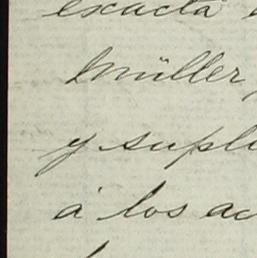 exacta
Müller,
y supli
á los ac